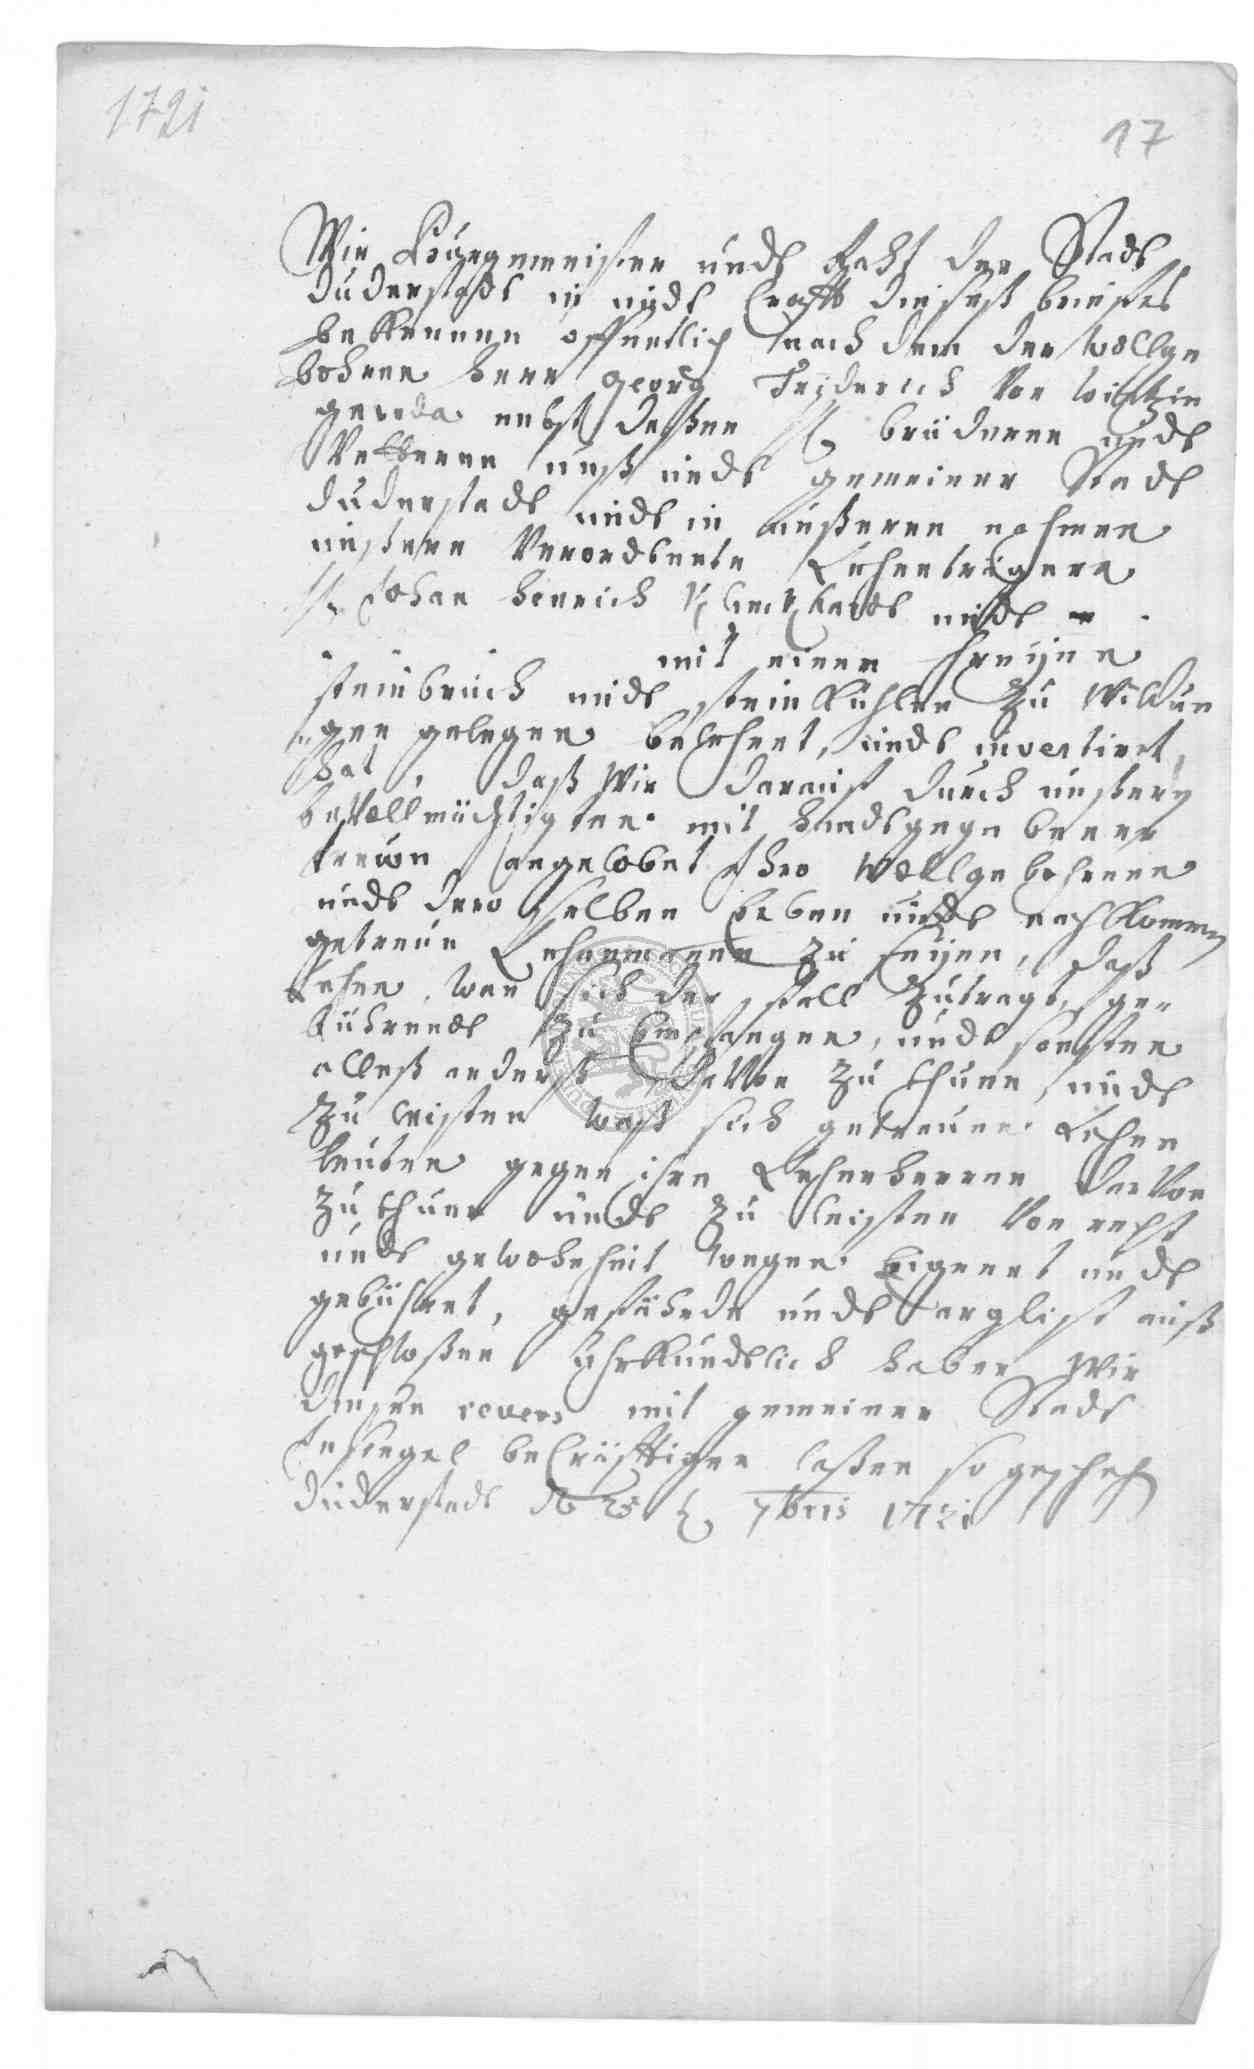 1721
17
Wir Bürgemeister undt Raht der Stadt
Duderstadt in undt krafft dießeß brieffes
bekennen offentlich nach dem der wollge
bohrne herr Georg Friderich von wintzin
geroda nebst deßen H. brüderen undt
Vetteren unß undt gemeiner Stadt
Duderstadt undt in unßeren nahmen
unsere Verordtnete Lehenträgere
H. Johan Henrich undt
mit einem freyen
steinbruch undt steinkuhlen zu Wildun
gen gelegen belehnet, undt investiret
hat, daß wir darauf durch unßern
bevollmächtigten mit handtgegebener
trewe angelobet Ihro wollgebohrnen
undt dero selben Erben undt nachkommen
getreue Lehenmanne zu seyen, daß
Lehne, wan sich der fall zutragt, ge„
bührendt zu Empfangen, undt sonsten
alleß anderß davon zu thuen, undt
zu leisten waß sich getreuen Lehen
leuten gegen ihre Lehenherren darvon
zu thuen undt zu leisten von recht
undt gewohnheit wegen Eignet undt
gebühret, gefährde undt arglist auß
geschloßen Uhrkundtlich haben wir
diesen revers mit gemeiner Stadt
Insiegel bekräfftigen laßen so geschehen
Duderstadt d 25 t 7bris 1721